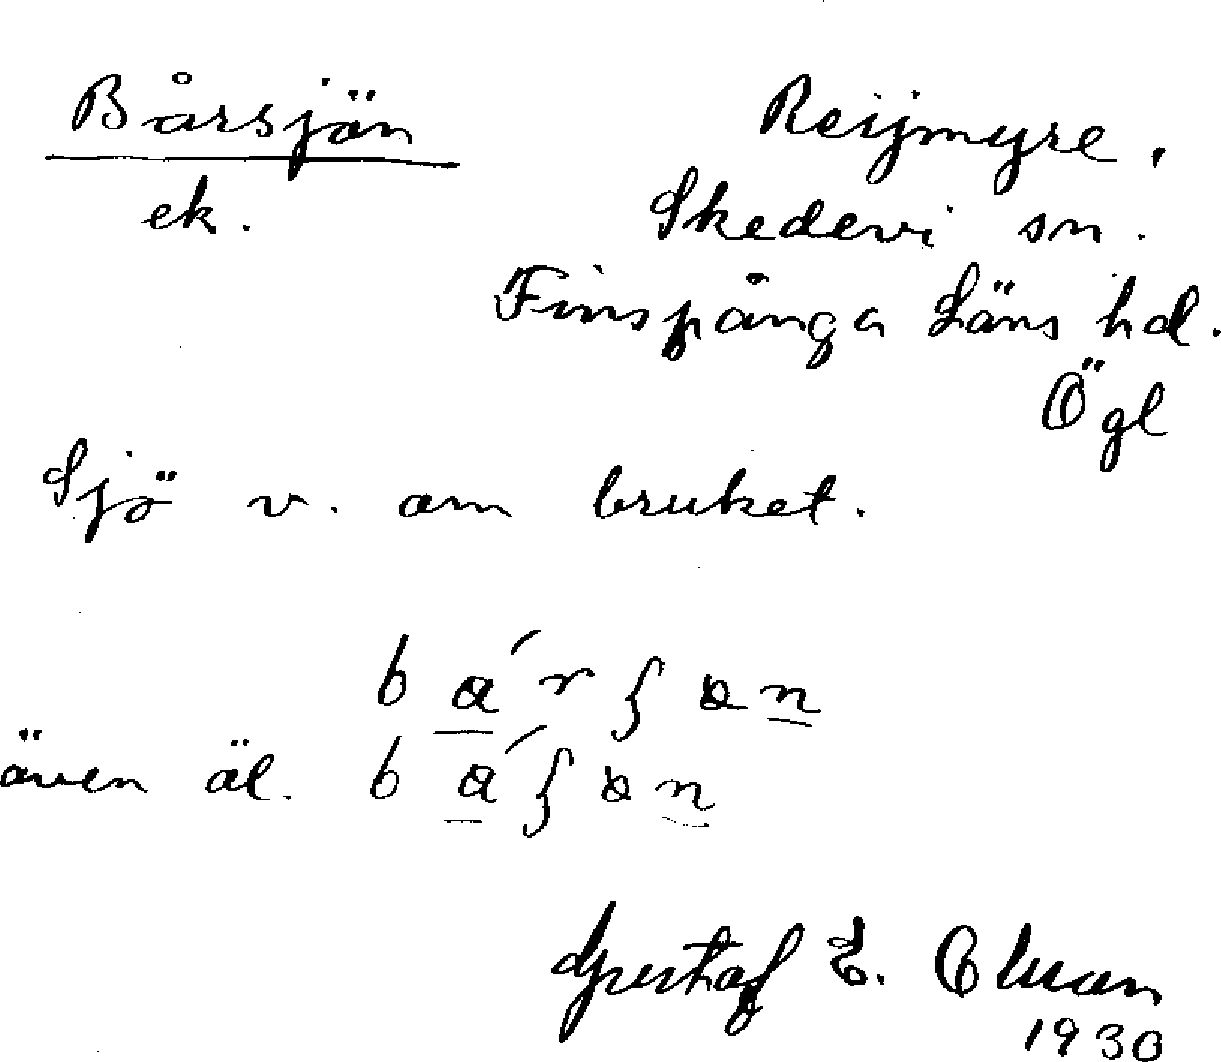 Bårsjön
ek.
Reijmyre.
Skedevi sn.
Finspånga Läns hd.
Ögl
Sjö v. om bruket.
även äl.
Gustaf E.
1930